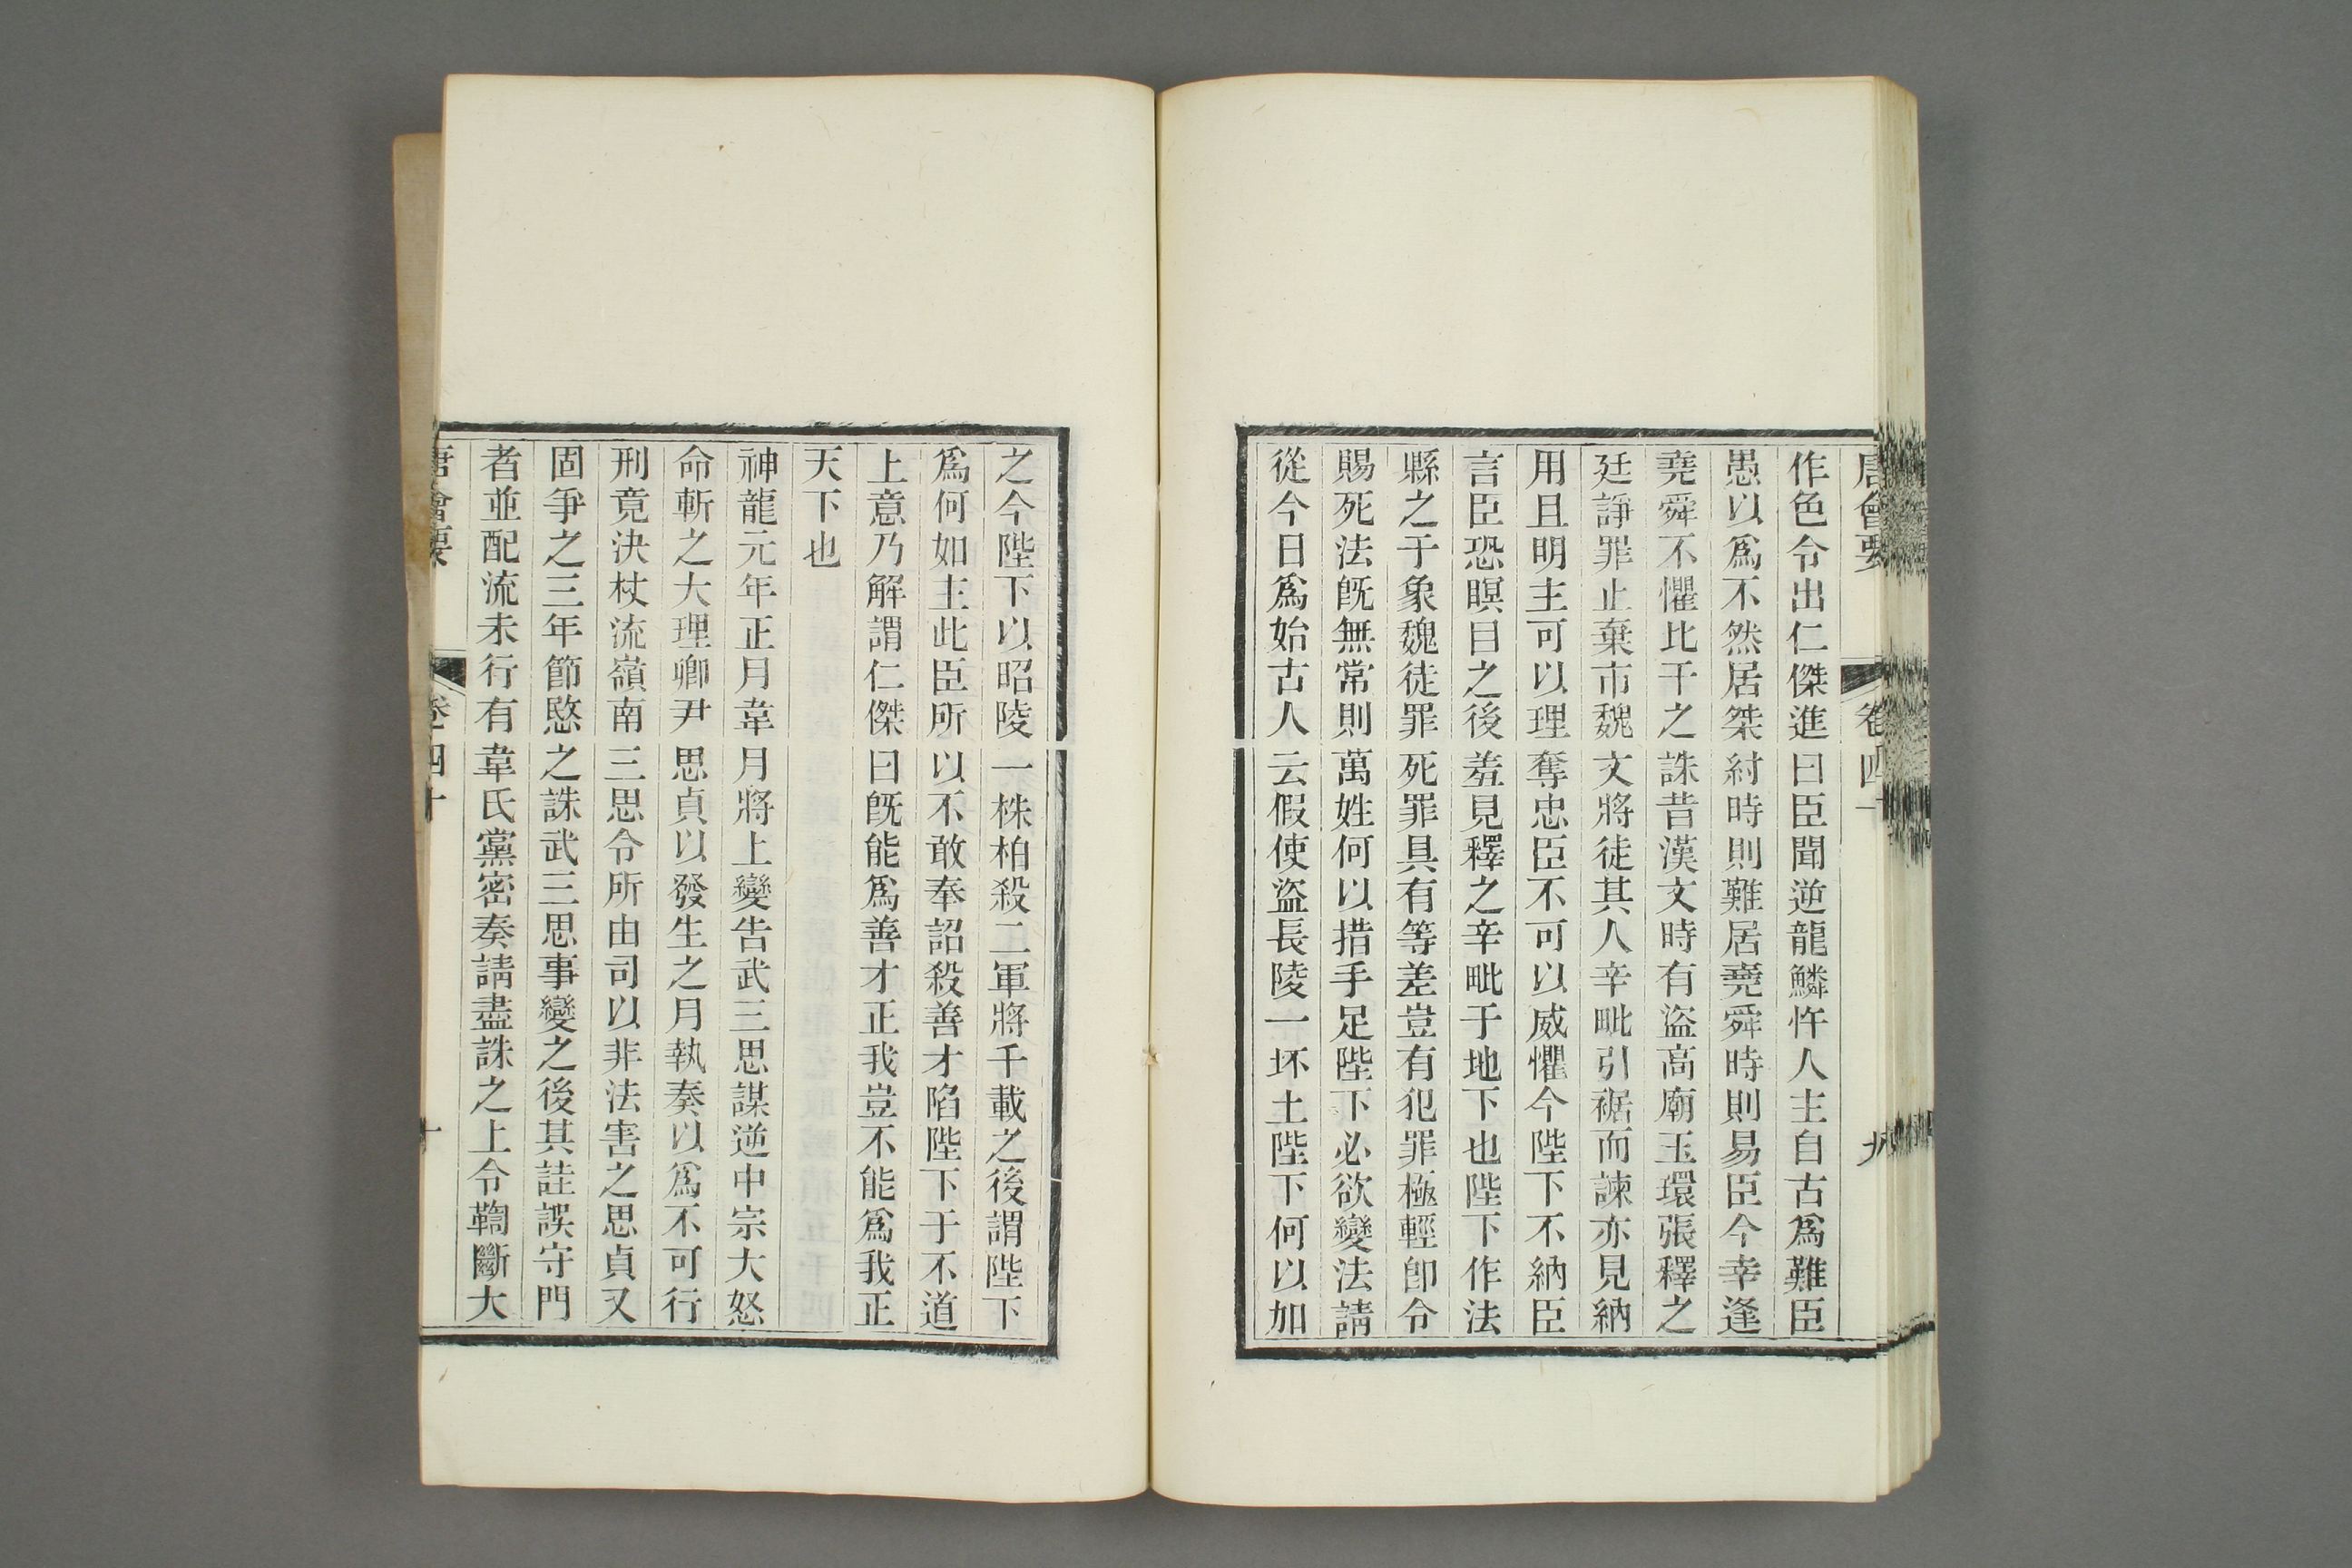 唐會要 卷四十 九
作色令出仁傑進曰臣聞逆龍鱗忤人主自古爲難臣
愚以爲不然居桀紂時則難居堯舜時則易臣今幸逢
堯舜不懼比干之誅昔漢文時有盜高廟玉環張釋之
廷諍罪止棄市魏文將徒其人辛毗引裾而諫亦見納
用且明主可以理奪忠臣不可以威懼今陛下不納臣
言臣恐瞑目之後羞見釋之辛毗于地下也陛下作法
縣之于象魏徒罪死罪具有等差豈有犯罪極輕卽令
賜死法旣無常則萬姓何以措手足陛下必欲變法請
從今日爲始古人云假使盜長陵一抔土陛下何以加
之今陛下以昭陵一株柏殺二軍將千載之後謂陛下
爲何如主此臣所以不敢奉詔殺善才陷陛下于不道
上意乃解謂仁傑曰旣能爲善才正我豈不能爲我正
天下也
神龍元年正月韋月將上變告武三思謀逆中宗大怒
命斬之大理卿尹思貞以發生之月執奏以爲不可行
刑竟決杖流嶺南三思令所由司以非法害之思貞又
固爭之三年節愍之誅武三思事變之後其詿誤守門
者並配流未行有韋氏黨密奏請盡誅之上令鞫斷大
唐會要 卷四十 十